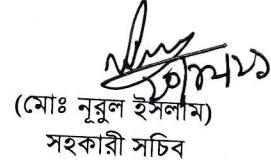 (মোঃ নূরুল ইসলাম)
সহকারী সচিব